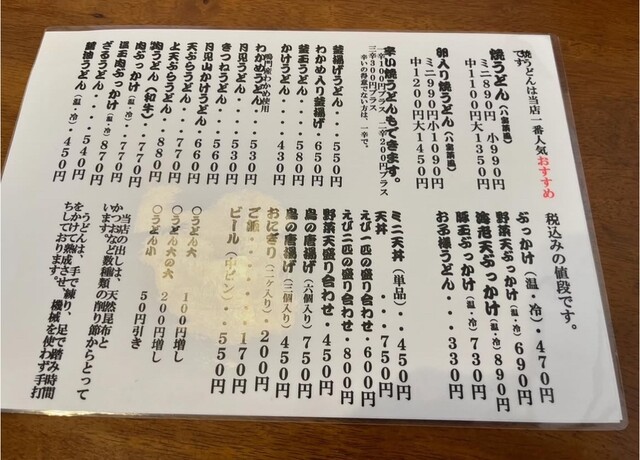 焼うどんは当店一番人気おすすめ
です。
焼うどん(八宝菜風)
ミニ890円 小990円
中1100円 大1350円
卵入り焼うどん(八宝菜風)
ミニ990円 小1090円
中1200円 大1450円
辛い焼うどんもできます。
一辛100円プラス 二辛200円プラス
三辛300円プラス
辛いの得意でない方は、一辛で。
釜揚げうどん・・・550円
わかめ入り釜揚げ・・650円
釜玉うどん・・・・580円
かけうどん・・・・430円
鳴門産わかめ使用
わかめうどん・・・530円
月見うどん・・・・530円
きつねうどん・・・560円
月見山かけうどん・・660円
天ぷらうどん・・・770円
上天ぷらうどん・・・880円
肉うどん(和牛)・・770円
肉ぶっかけ(温・冷)・770円
温玉肉ぶっかけ(温・冷)・870円
ざるうどん・・・・500円
醤油うどん(温・冷)・450円
税込みの値段です。
ぶっかけ(温・冷)・・470円
野菜天ぶっかけ(温・冷)690円
海老天ぶっかけ(温・冷)890円
豚玉ぶっかけ(温・冷)730円
お子様うどん・・・330円
ミニ天丼(単品)・・450円
天丼・・・・750円
えび一匹の盛り合わせ・600円
えび二匹の盛り合わせ・800円
野菜天盛り合わせ・450円
鳥の唐揚げ(六個入り)750円
鳥の唐揚げ(三個入り)450円
おにぎり(二ケ入り)・200円
ご飯・・・・・170円
ビール(中ビン)・・・550円
〇うどん大 100円増し
〇うどん大の大 200円増し
〇うどん小 50円引き
当店の出しは、天然昆布と
かつおなど数種類の削り節からとって
います。
うどんは、手で練り、足で踏み時間
をかけて熟成させ、機械を使わず手打
ちしております。